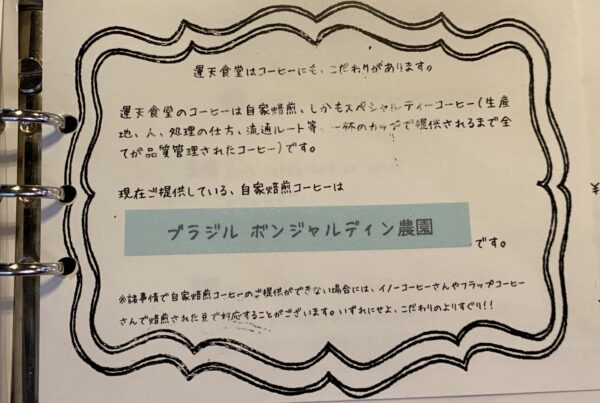 運天食堂はコーヒーにも、こだわりがあります。
運天食堂のコーヒーは自家焙煎、しかもスペシャルティーコーヒー(生産
地、人、処理の仕方、流通ルート等、一杯のカップで提供されるまで全
てが品質管理されたコーヒー)です。
現在ご提供している、自家焙煎コーヒーは
ブラジル ボンジャルディン農園
です。
※諸事情で自家焙煎コーヒーのご提供ができない場合には、イノーコーヒーさんやフラップコーヒー
さんで焙煎された豆で対応することがございます。いずれにせよ、こだわりのよりすぐり!!